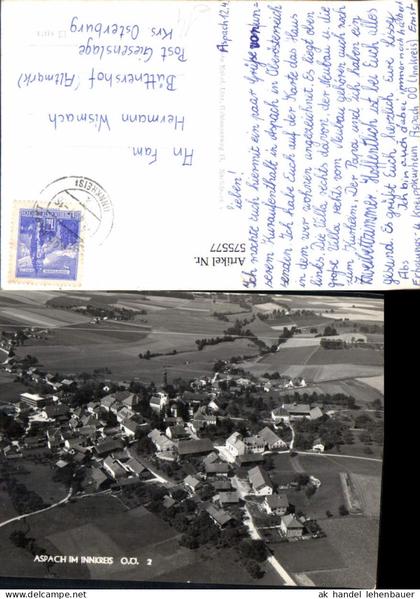 Aspach 12.4.
Lieben!
Ich möchte euch hiermit ein paar Grüße von un-
serem Kuraufenthalt in Aspach in Oberösterreich
senden. Ich habe Euch auf der Karte das Haus
in dem wir wohnen angezeichnet. Es liegt oben
links. Die Villa rechts davor, der Neubau u. die
große Villa rechts vom Neubau gehören auch noch
zum Kurheim. Der Papa und ich haben ein
Zweibettzimmer. Hoffentlich ist bei Euch alles
gesund. Es grüßt Euch herzlich Eure
Ich bin auch dabei, immer noch
Kneippkurheim Aspach OÖ Innkreis Ernst
An Fam.
Hermann Wismach
Büttnershof (Altmark)
Post Giesenslage
Krs Osterburg
(INNKREIS)
Artikel Nr.
575577
ASPACH IM INNKREIS O.Ö. 2
ak handel lehenbauer